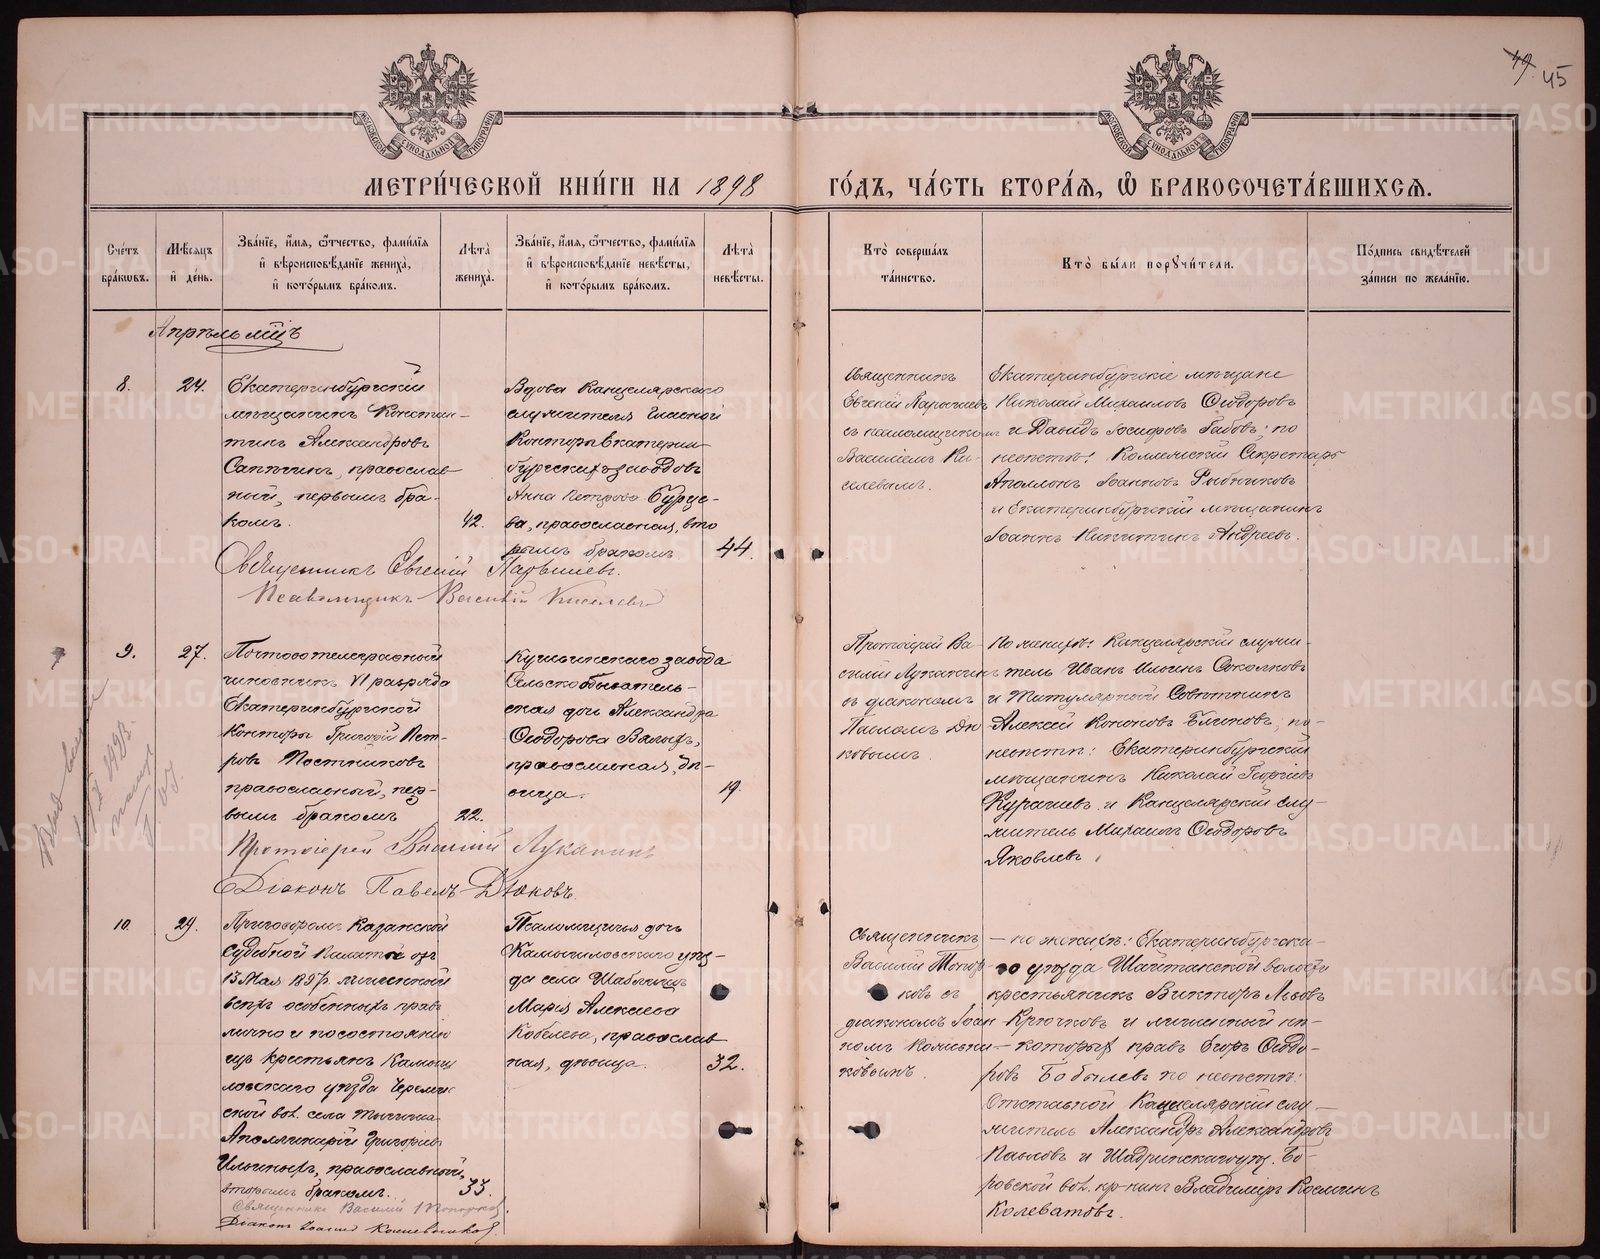 49. 45
МОСКОВСКОЙ СУНОДАЛЬНОЙ ТИПОГРАФІИ
МОСКОВСКОЙ СУНОДАЛЬНОЙ ТИПОГРАФІИ
МЕТРИ́ЧЕСКОЙ КНИ́ГИ НА 1898 ГО́ДЪ, ЧА́СТЬ ВТОРА́Я, Ѡ҆ БРАКОСОЧЕТА́ВШИХСЯ.
Сче́тъ бра́кѡвъ.
Мѣ́сяцъ и҆ де́нь.
Зва́нїе, и҆́мя, ѻ҆́тчество, фами́лїя
и҆ вѣроисповѣ́данїе жениха̀,
и҆ кото́рымъ бра́комъ.
Лѣ́та жениха̀.
Зва́нїе, и҆́мя, ѻ҆́тчество, фами́лїя
и҆ вѣроисповѣ́данїе невѣ́сты,
и҆ кото́рымъ бра́комъ.
Лѣ́та невѣ́сты.
Кто̀ соверша́лъ
та́инство.
Кто̀ бы́ли порꙋчи́тели.
По́дпись свидѣ́телей
за́писи по жела́нїю.
Апрѣль мцъ
8.
24.
Екатеринбургскій
мѣщанинъ Констан-
тинъ Александровъ
православ-
ный, первымъ бра-
комъ.
42.
Вдова Канцелярскаго
служителя Главной
Конторы Екатерин-
бургскихъ заводовъ
Анна Петрова Бурце-
ва, православная, вто
рымъ бракомъ
44.
Священникъ
Евгеній
съ псаломщикомъ
Василіемъ Ки-
селевымъ.
Екатеринбургскіе мѣщане
Николай Михаиловъ Ѳеодоровъ
и Давидъ Іосифовъ Бабовъ; по
невѣстѣ: Коллежскій Секретарь
Аполлонъ Іоанновъ Рыбниковъ
и Екатеринбургскій мѣщанинъ
Іоаннъ Никитинъ Андреевъ.
Священникъ Евгеній
Псаломщикъ Василій Киселевъ
9.
27.
Почтово телеграфный
чиновникъ VI разряда
Екатеринбургской
Конторы Григорій Пет-
ровъ Постниковъ
православный, пер-
вымъ бракомъ
22.
Кушвинскаго завода
Сельскообыватель-
ская дочь Александра
Ѳеодорова
православная, дѣ-
вица.
19.
Протоіерей Ва-
силій Луканинъ
съ діакономъ
Павломъ Дю
ковымъ.
По женихѣ: Канцелярскій служи-
тель Иванъ Ильинъ Соколовъ
и Титулярный Совѣтникъ
Алексѣй Кононовъ Блиновъ; по
невѣстѣ: Екатеринбургскій
мѣщанинъ Николай Георгіевъ
и Канцелярскій слу-
житель Михаилъ Ѳеодоровъ
Яковлевъ.
Протоіерей Василій Луканинъ
Діаконъ Павелъ Дюковъ.
10.
29.
Приговоромъ Казанской
Судебной Палаты отъ
13 Мая 1897 г. лишенный
всѣхъ особенныхъ правъ
лично и по состоянію
изъ крестьянъ Камыш
ловскаго уѣзда
ской вол. села
Аполлинарій Григорьевъ
Ильиныхъ, православный,
вторымъ бракомъ.
33.
Псаломщичья дочь
Камышловскаго уѣз-
да села
Марія Алексѣева
Кобелева, православ
ная, дѣвица.
32.
Священникъ
Василій Топор
ковъ съ
діакономъ Іоан
номъ
— по женихѣ: Екатеринбургска-
го уѣзда Шайтанской волости
крестьянинъ Викторъ Львовъ
Крючковъ и лишенный нѣ-
которыхъ правъ Егоръ Ѳеодо-
ровъ Бобылевъ по невѣстѣ:
Отставной Канцелярскій слу-
житель Александръ Александровъ
Павловъ и Шадринскаго уѣз.
ровской вол. кр-нинъ Владиміръ Козьминъ
Колеватовъ.
Священникъ Василій Топорковъ.
Діаконъ Іоаннъ
METRIKI.GASO-URAL.RU